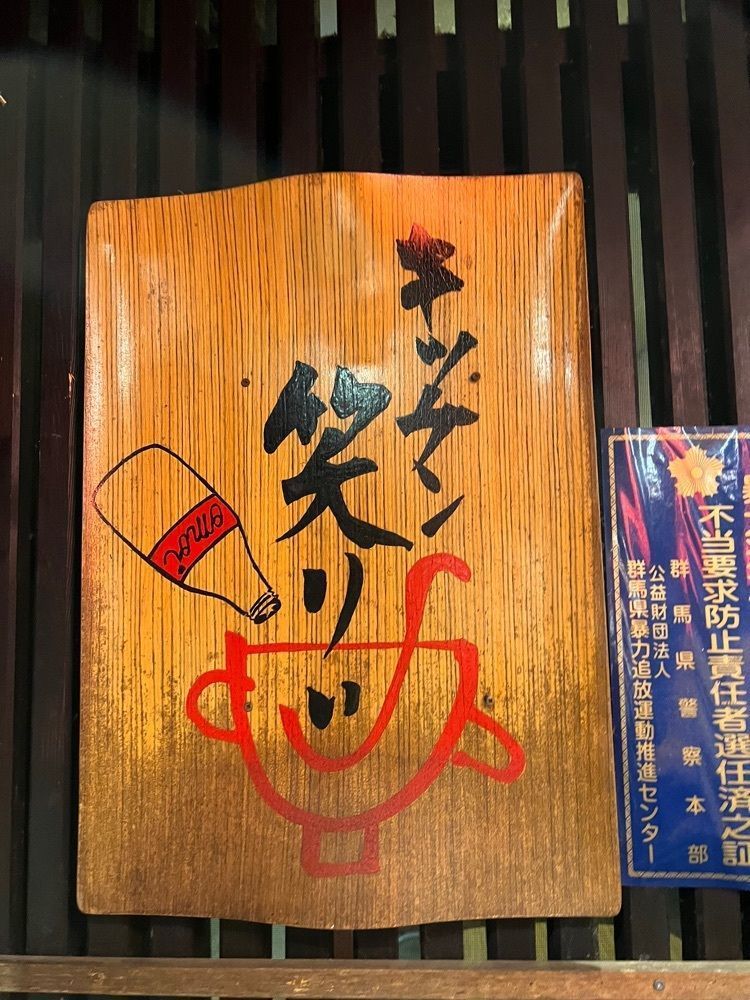 キッチン
笑りい
emoi
不当要求防止責任者選任済之証
群馬県警察本部
公益財団法人
群馬県暴力追放運動推進センター